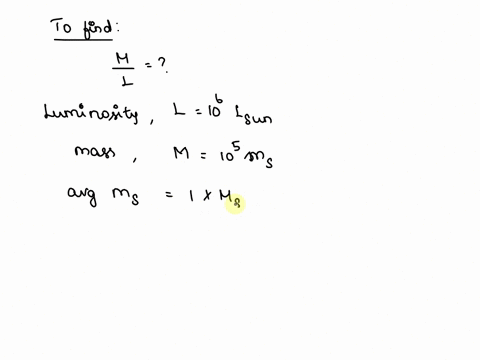 To find:
M/L = ?
Luminosity, L = 10⁶ L_sun
mass, M = 10⁵ m_s
avg m_s = 1 × M_s